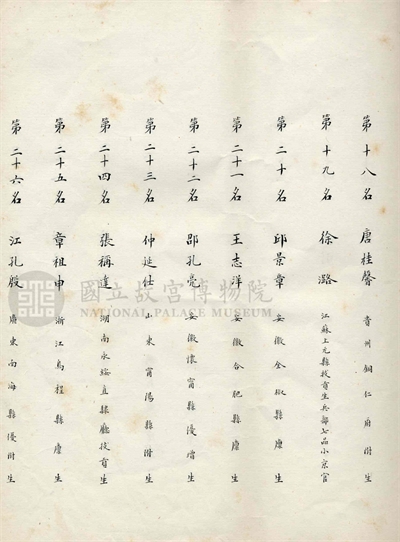 第十八名 唐桂馨 貴州銅仁府附生
第十九名 徐潞 江蘇上元縣拔貢生兵部七品小京官
第二十名 邱景章 安徽全椒縣廩生
第二十一名 王志洋 安徽合肥縣廩生
第二十二名 邵孔亮 安徽懷甯縣優增生
第二十三名 仲延仕 山東甯陽縣附生
第二十四名 張稱達 湖南永綏直隸廳拔貢生
第二十五名 章祖申 浙江烏程縣廩生
第二十六名 江孔殷 廣東南海縣優附生
國立故宮博物院
NATIONAL PALACE MUSEUM